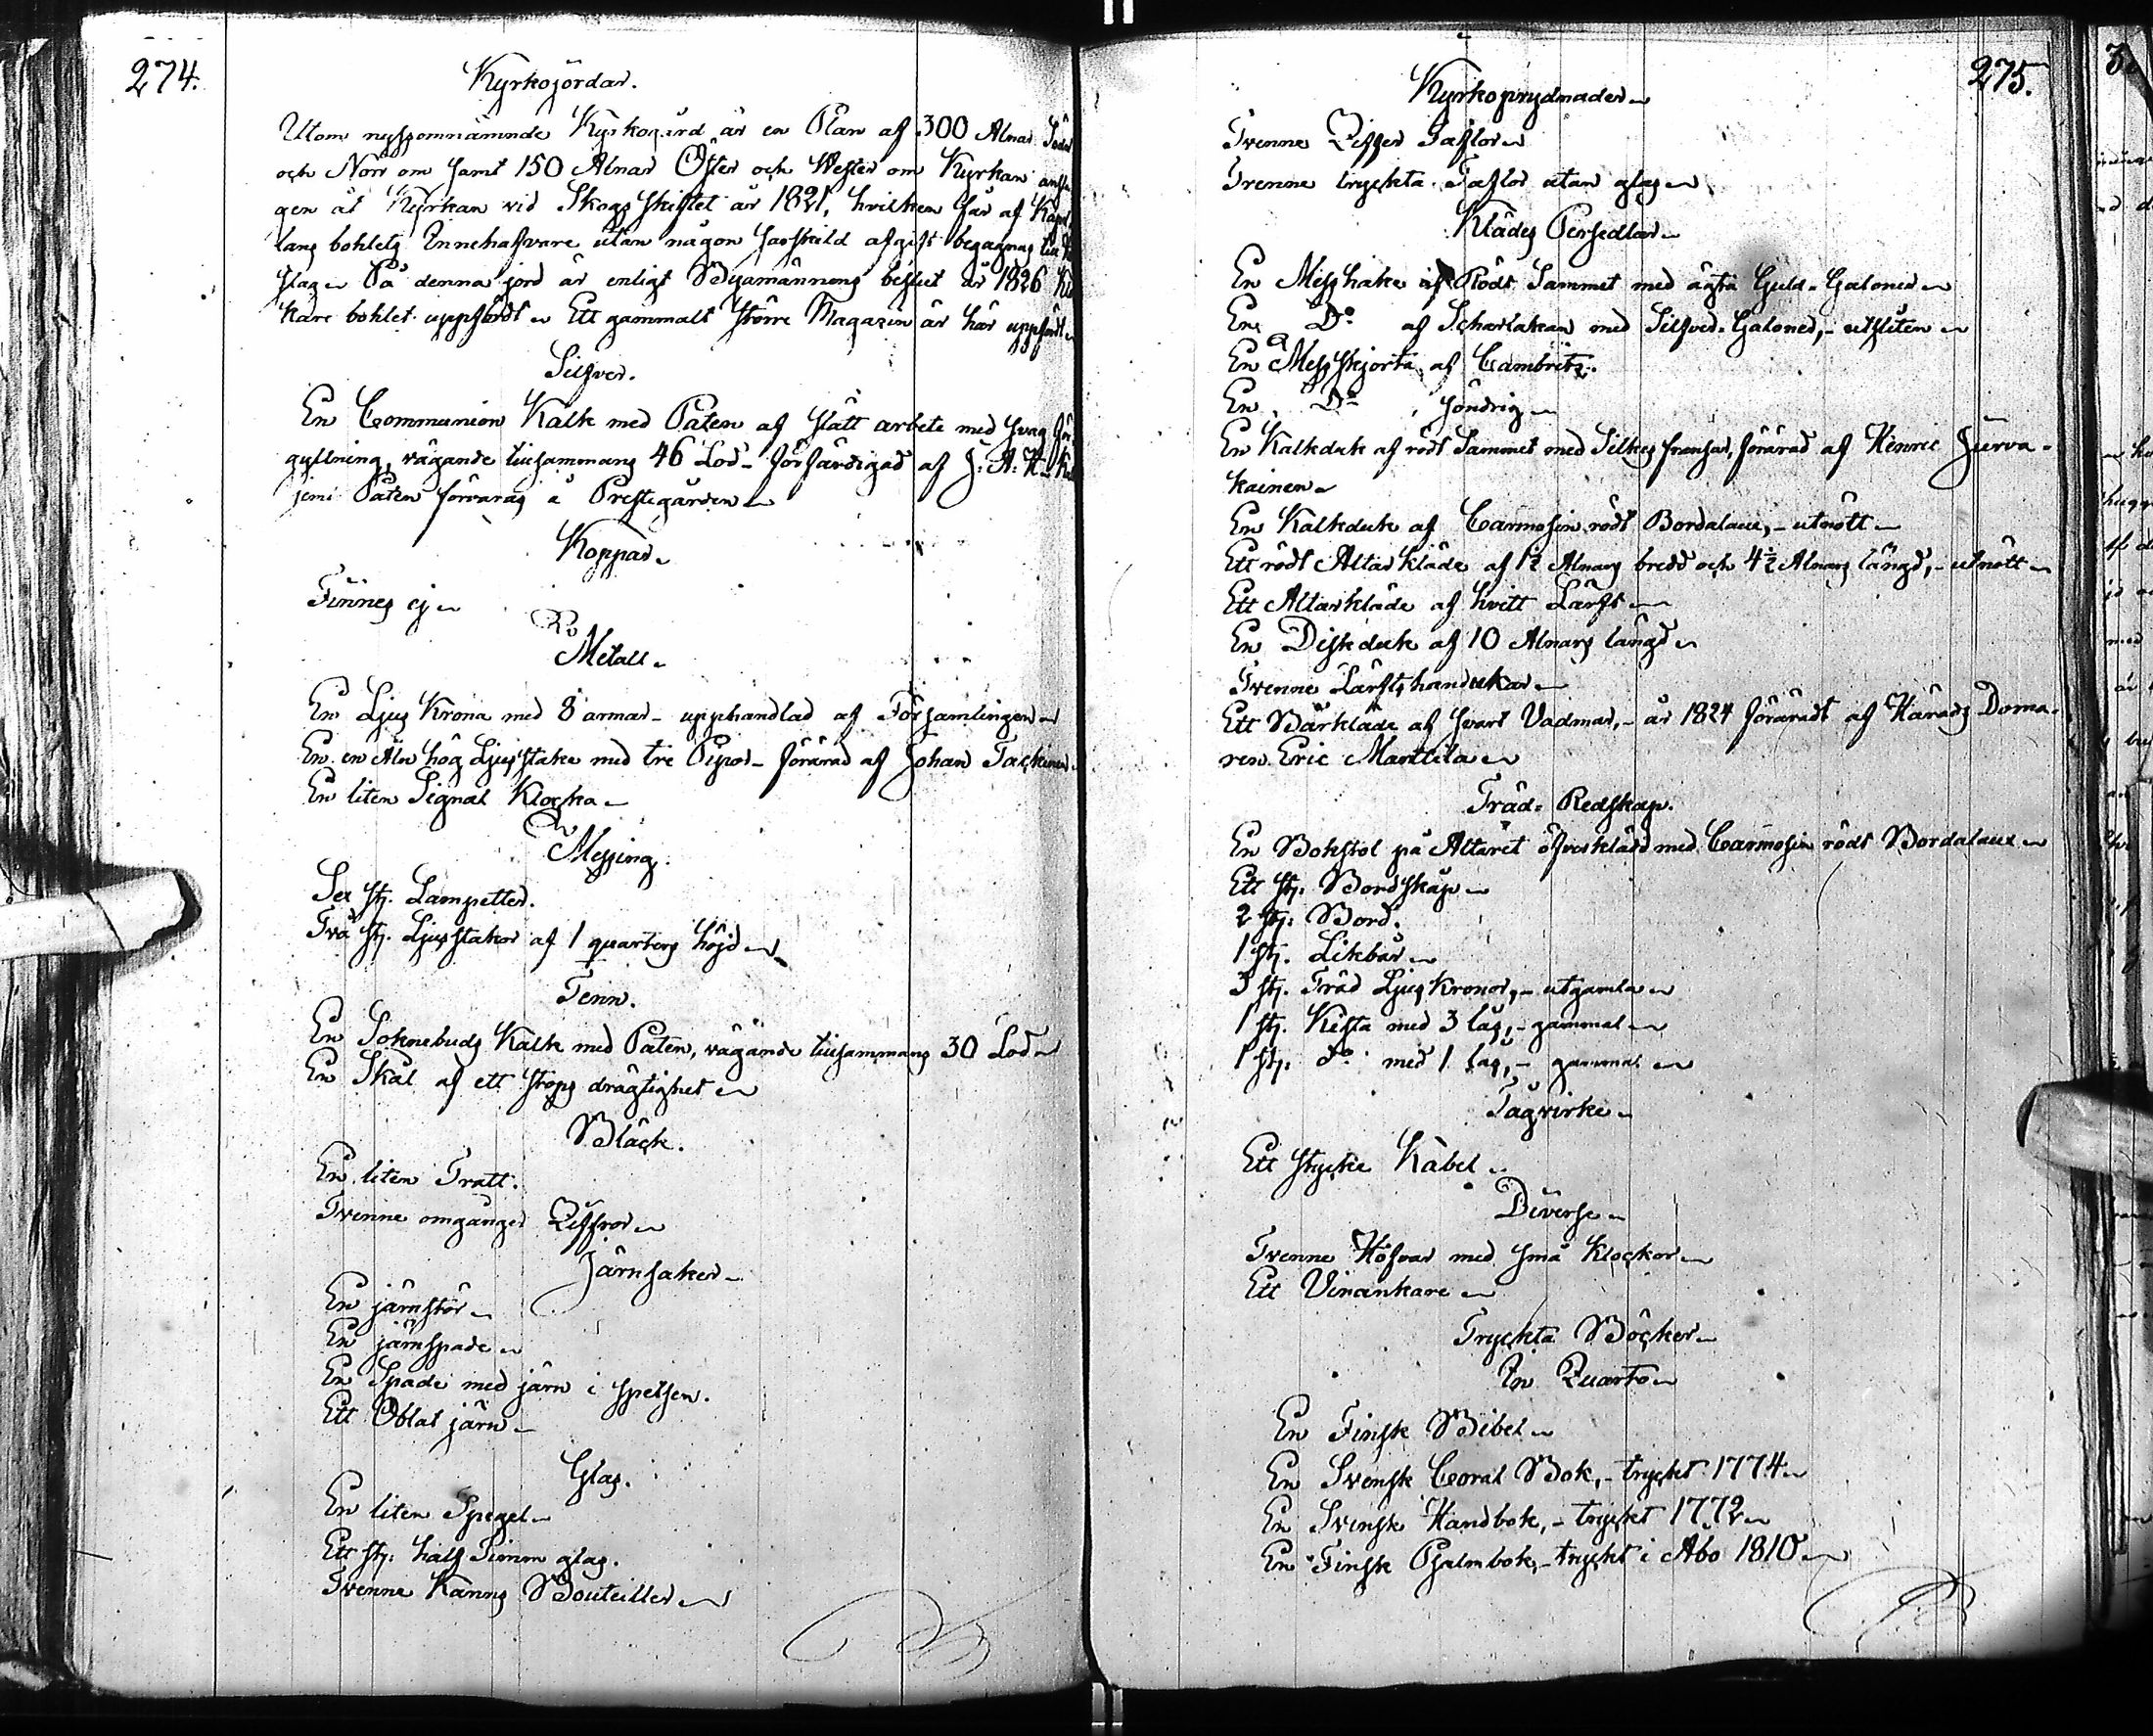 274.
Kyrkojordar.
Utom nyssomnämnde Kyrkogård är en Plan af 300 Alnar Söder
och Norr om samt 150 Alnar Öster och Wester om Kyrkan
gen åt Kyrkan vid Skogsskiftet år 1821, hvilken får af
lans bohlets Innehafvare utan någon särskild afgift begagnas till
slag. På denna jord är enligt Byamännens beslut år 1826
kare bohlet uppfördt. Ett gammalt större Magazin är här uppfördt.
Silfver.
En Communion Kalk med Paten af slätt arbete med svag för
gyllning, vägande tillsammans 46 Lod. Förfärdigad af J: A:
jemi Paten förvaras å Prestegården
Koppar.
Finnes ej
Metall.
En Ljus Krona med 8 armar - upphandlad af Församlingen
En en Aln hög Ljusstake med tre Pipor - förärad af Johan Tackinen
En liten Signal Klocka
Messing.
Sex st. Lampetter.
Två st. Ljusstakar af 1 quarters höjd
Tenn.
En Soknebuds Kalk med Paten, vägande tillsammans 30 Lod
En Skål af ett stops drägtighet
Bläck.
En liten Tratt.
Tvenne omgångar Ziffror
Järnsaker
En järnstör
En järnspade
En Spade med järn i spetsen.
Ett Oblat järn
Glas.
En liten Spegel
Ett st: half Timm glas.
Tvenne Kanns Bouteiller
275.
Kyrkoprydnader
Tvenne Ziffer Taflor
Trenne tryckta Taflor utan glas
Klädes Persedlar
En Messhake af Rödt Sammet med ägta Guld-Galoner
En Do af Scharlakan med Silfver-Galoner, - utsliten
En Messskjorta af Cambrits.
En Do söndrig
En Kalkduk af rödt Sammet med Silkes fransar, förärad af Henric Jurva-
kainen
En Kalkduk af Carmosin rödt Bordalaue, - utnött
Ett rödt Altar kläde af 1½ Alnars bredd och 4½ Alnars längd, - utnött
Ett Altarkläde af hvitt Lärft
En Diskduk af 10 Alnars längd
Tvenne Lärftshandukar
Ett Bårkläde af svart Vadmar, - år 1824 förärадt af Härads Doma-
ren Eric Marttila
Träd-Redskap.
En Bokstol på Altaret öfverklädd med Carmosin rödt Bordalaue
Ett st: Bordskåp
2 st: Bord.
1 st. Likbår
3 st. Träd Ljus Kronor, - utgamla
1 st. Kista med 3 lås, - gammal
1 st. do med 1 lås, - gammal
Tågvirke
Ett stycke Kabel
Diverse
Tvenne Håfvar med små klockor
Ett Vinankare
Tryckta Böcker
In Quarto
En Finsk Bibel
En Svensk Coral Bok, - tryckt 1774
En Svensk Handbok, - tryckt 1772
En Finsk Psalmbok, - tryckt i Åbo 1810